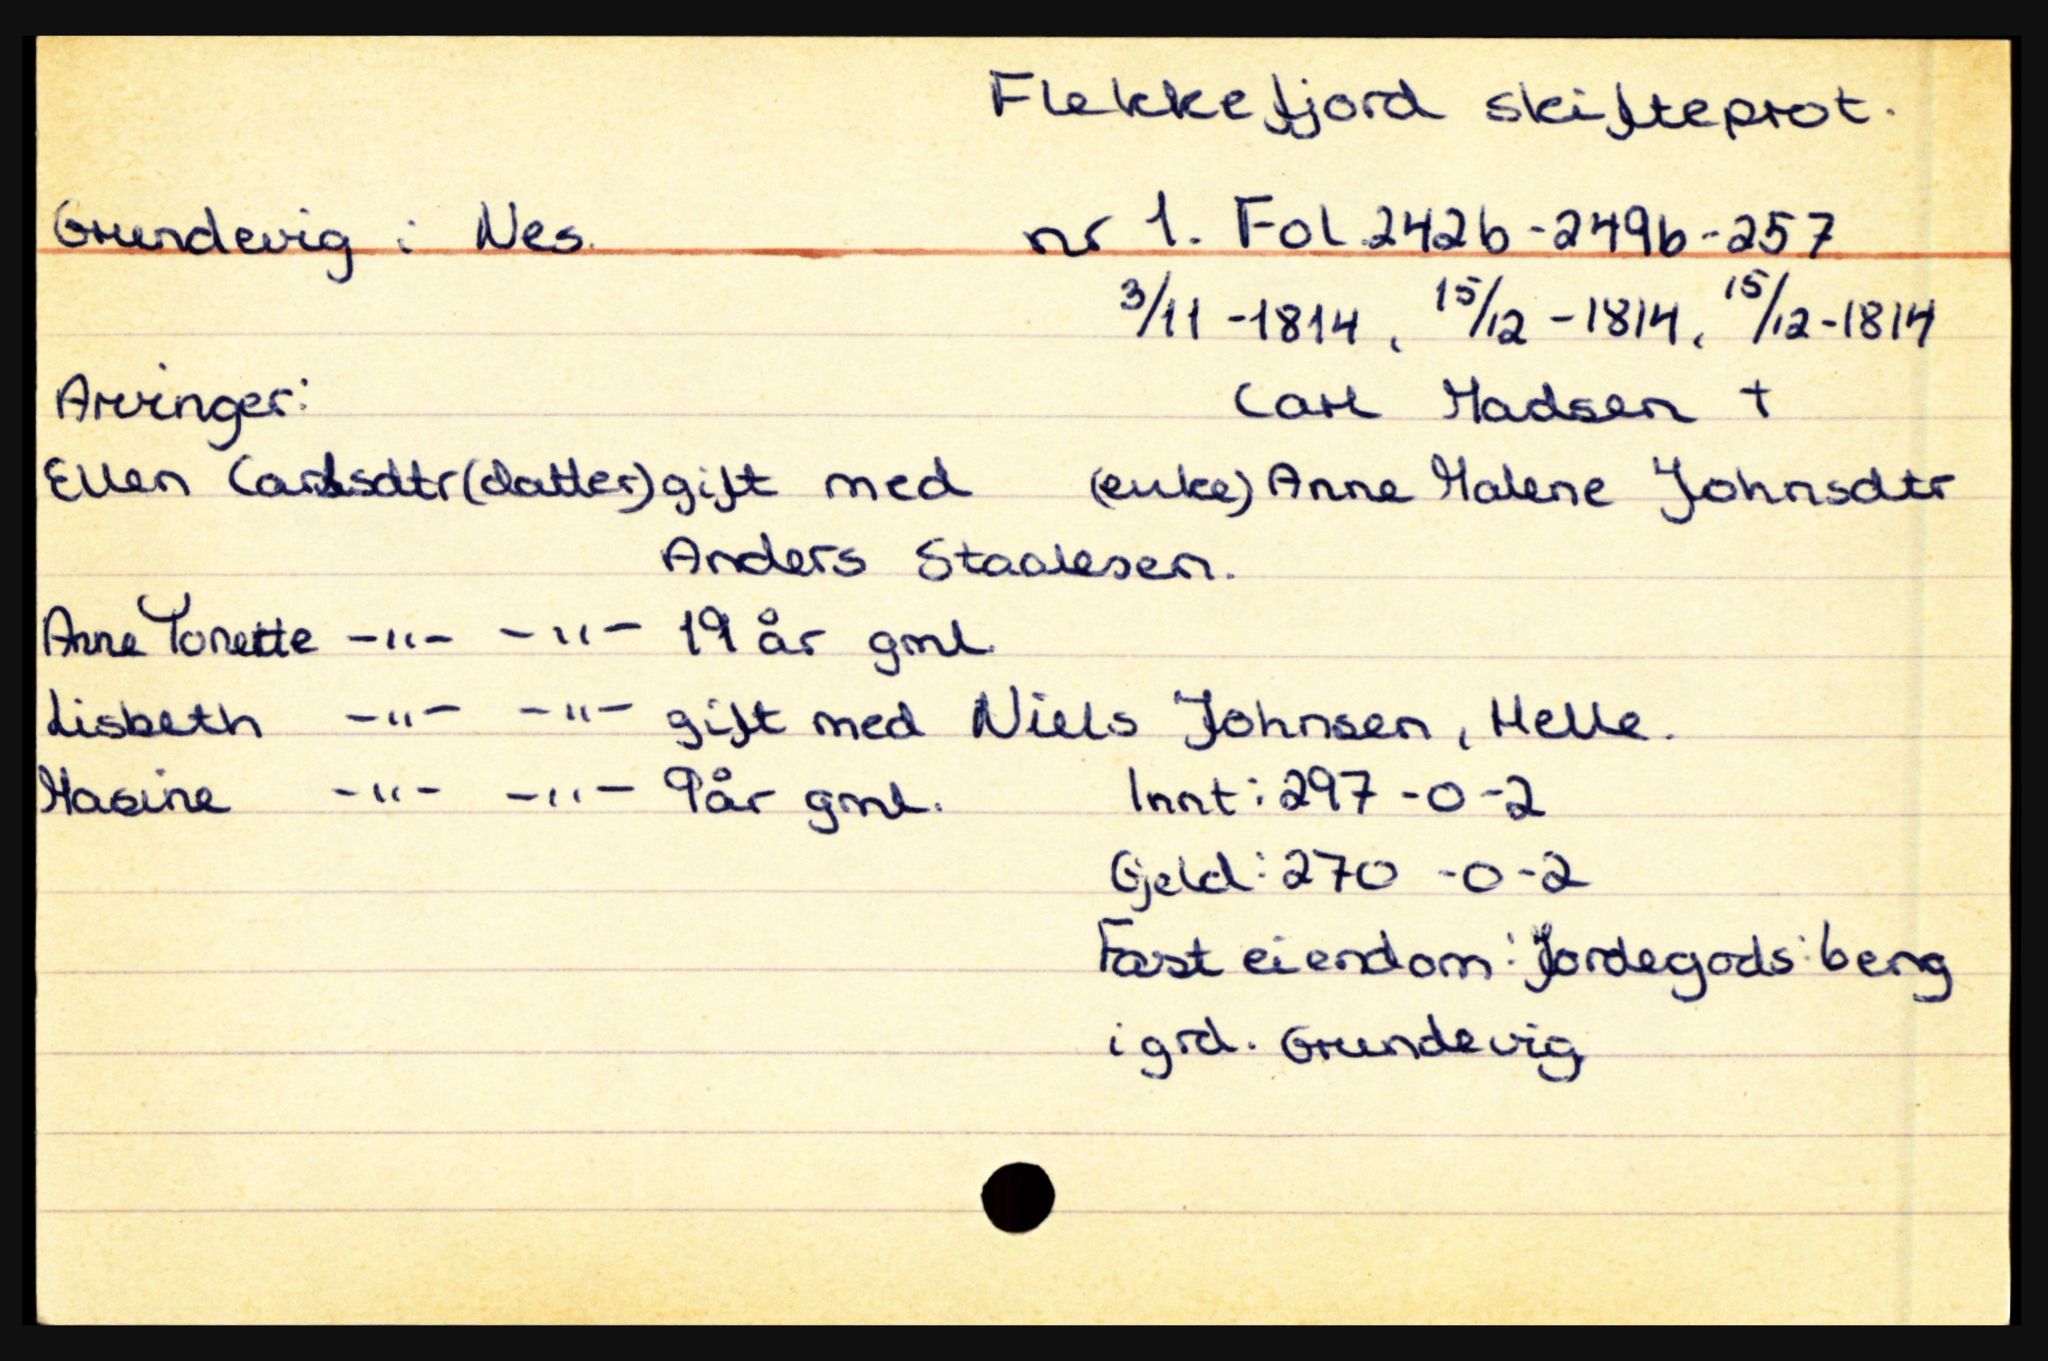 Flekkefjord skifteprot.
Grundevig i Nes. nr 1. Fol 242b-249b-257
3/11 -1814, 15/12 -1814, 15/12-1814
Arvinger: Carl Madsen +
Ellen Carlsdtr (datter) gift med (enke) Anne Malene Johnsdtr
Anders Staalesen.
Anne Tonette -"- -"- 19 år gml.
Lisbeth -"- -"- gift med Niels Johnsen, Helle.
Masine -"- -"- 9 år gml. Innt: 297 -0-2
Gjeld: 270 -0-2
Fast eiendom: Jordegods: beng
i grd. Grundevig